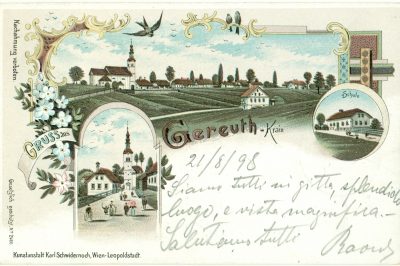 Nachahmung verboten.
Gruss aus
Gereuth in Krain
Schule
21/8/98
Siamo tutti in gitta, splendido
luogo, e vista magnifica. –
Salutiamo tutti
Kunstanstalt Karl Schwidernoch, Wien-Leopoldstadt.